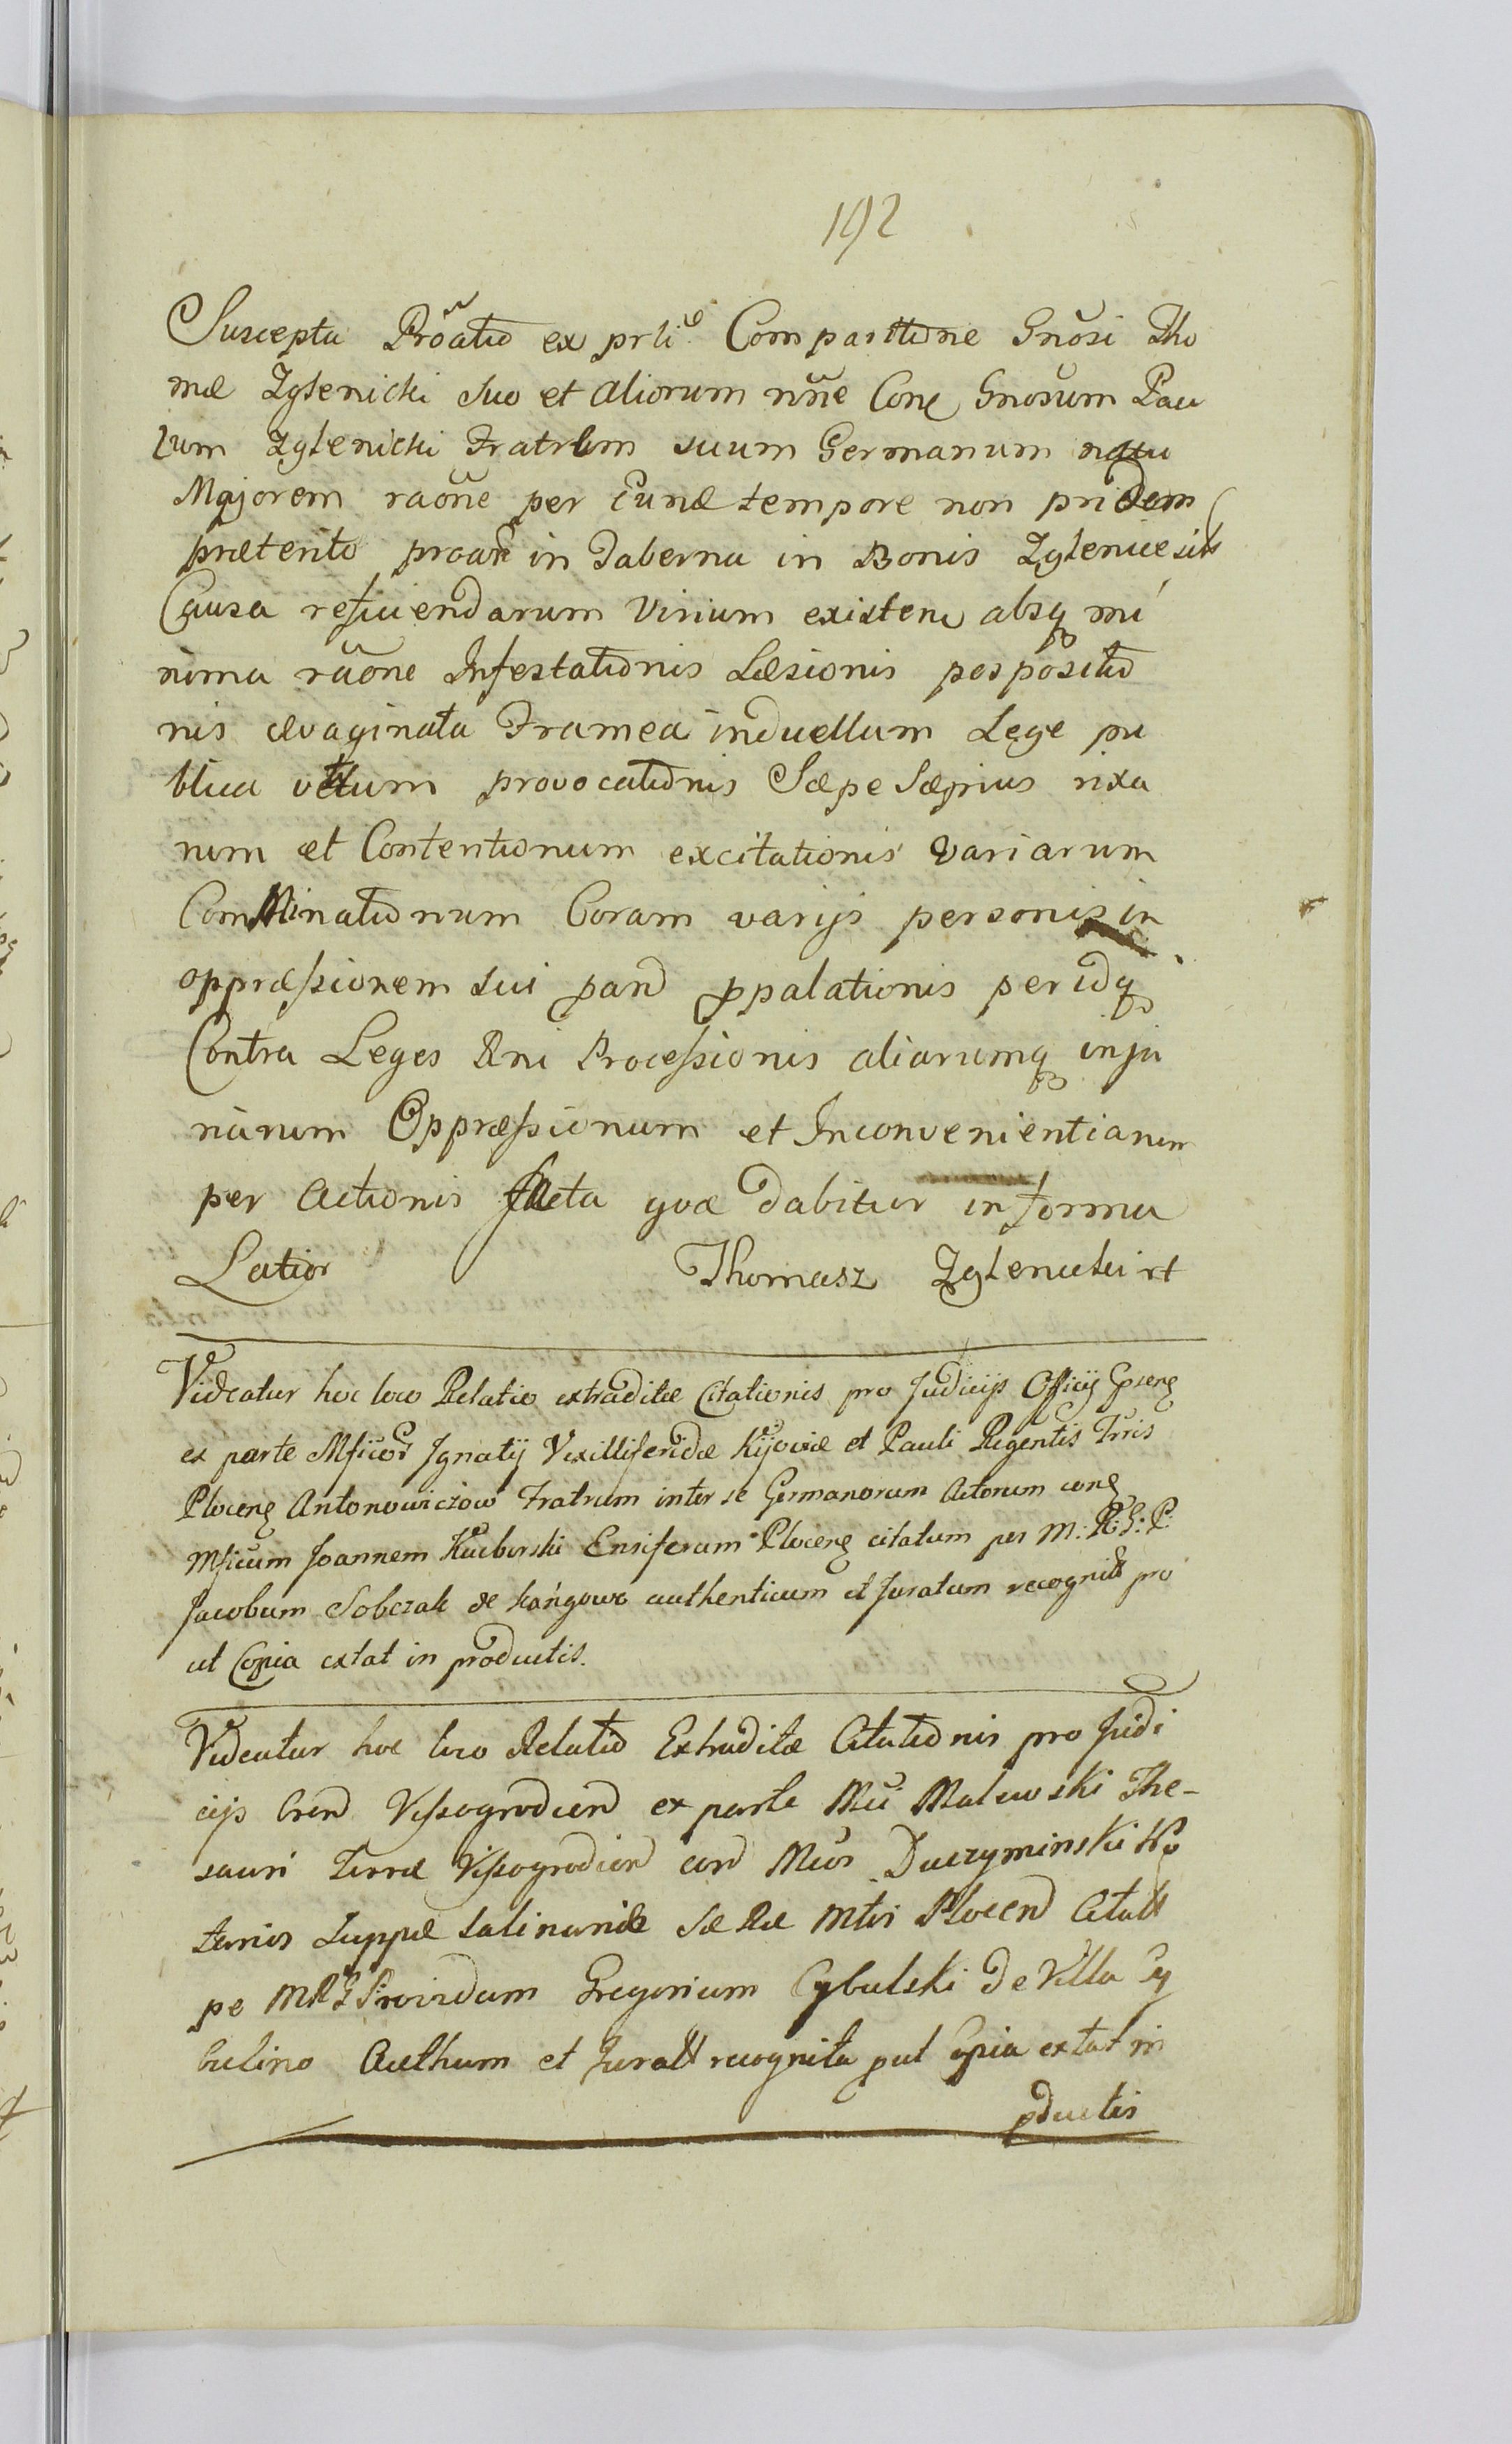 192
Suscepta Pröatio ex prti Comparitione Gnosi Tho
mæ Zglenicki suo et aliorum nñe Cone Gnosum Pau
lum Zglenicki Fratrem suum Germanum natu
Majorem raõne per Eundæ tempore non pridem
præterito in Taberna in Bonis Zglenice sit
Causa reficiendarum Virium existen absq mi
nima raõne Infestationis Læsionis pospositio
nis evaginata Framea induellum Lege pu
blica vetitum provocationis Sæpe Sæpius rixa
rum et Contentionum excitationis Variarum
Comminationum Coram varijs personis in
oppræssionem sui ppalationis per idq
Contra Leges Rni Processionis aliarumq inju
riarum Oppræssionum et Inconvenientiarum
per Actionis facta quæ dabitur in forma
Latior Thomasz Zglenicki
Videatur hoc loco Relatio extraditæ Citationis pro Judicijs Officij
ex parte Mficor Ignatij Vexilliferidæ Kijoviæ et Pauli Regentis Trris
Plocen Antonowiczow Fratrum inter se Germanorum Actorum con
Mficum Joannem Kuborski Ensiferum Plocen citatum per M: R: G: P:
Jacobum Sobczak de authenticum et Juratum recognit pro
ut Copia extat in productis.
Videatur hoc loco Relatio Extraditæ Citationis pro Judi
cijs Vissogrodien ex parte Mci Malewski The-
sauri Terræ Vissogrodien con Mcos Duczyminski No
tarios Zuppæ Salinariæ Sæ Ræ Mtis Plocen Citatt
pe MRG Providum Gregorium Cybulski de Villa Cy
bulino Authum et Juratt recognita put Copia extat in
pductis